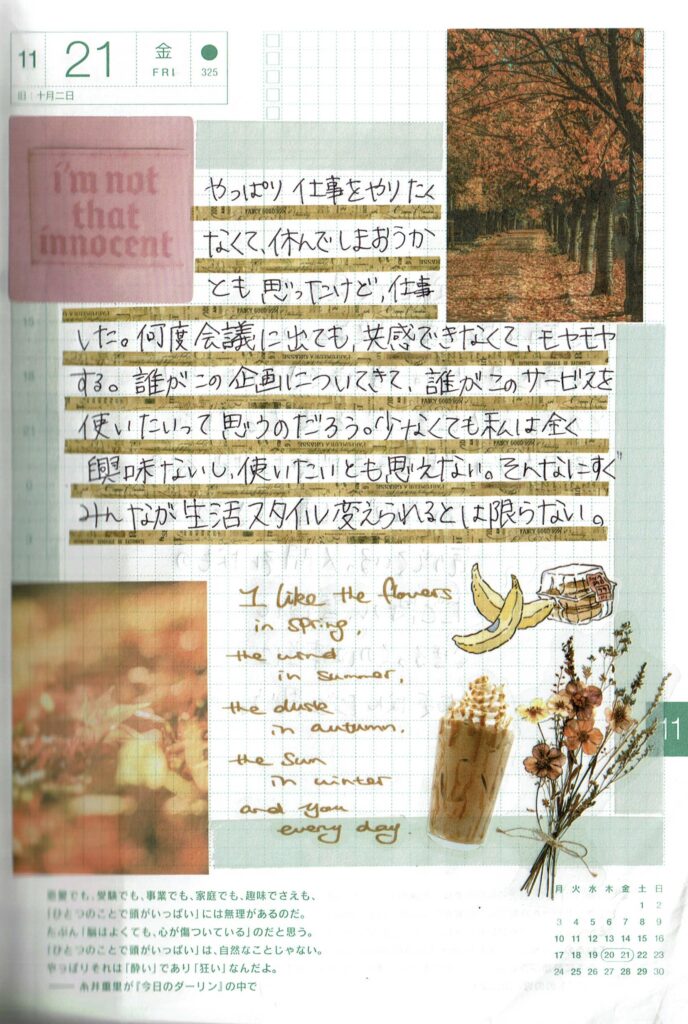 11
21
金
FRI
325
旧：十月二日
i'm not
that
innocent
やっぱり仕事をやりたく
なくて、休んでしまおうか
とも思ったけど、仕事
した。何度会議に出ても、共感できなくて、モヤモヤ
する。誰がこの企画についてきて、誰がこのサービスを
使いたいって思うのだろう。少なくても私は全く
興味ないし、使いたいとも思えない。そんなにすぐ
みんなが生活スタイル変えられるとは限らない。
I like the flowers
in spring,
the wind
in summer,
the dusk
in autumn,
the sun
in winter
and you
every day.
11
恋愛でも、受験でも、事業でも、家庭でも、趣味でさえも、
「ひとつのことで頭がいっぱい」には無理があるのだ。
たぶん「脳はよくても、心が傷ついている」のだと思う。
「ひとつのことで頭がいっぱい」は、自然なことじゃない。
やっぱりそれは「酔い」であり「狂い」なんだよ。
―― 糸井重里が『今日のダーリン』の中で
月 火 水 木 金 土 日
1 2
3 4 5 6 7 8 9
10 11 12 13 14 15 16
17 18 19 20 21 22 23
24 25 26 27 28 29 30